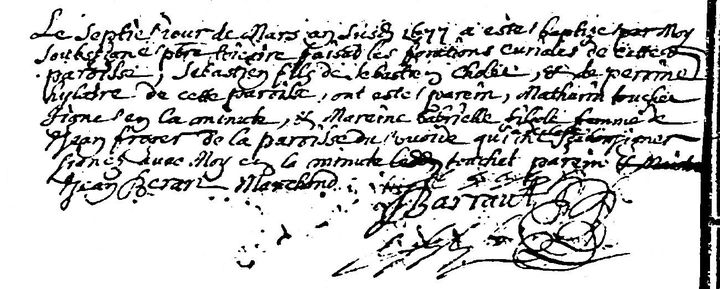 Le septies jour de Mars an susd 1677 a esté baptizé par Moy
soubsigné pbre vicaire faisant les fonctions curiales de cette
paroisse, Sebastien fils de sebastien Cholet, et de perrine
hylaire de cette paroisse, ont esté parein, Mathurin touchet
signés en la minute, & Mareine Gabrielle femme de
Jean froger de la paroisse du
signés avec Moy en la minute led touchet parein &
Jean Marchand
Barraut